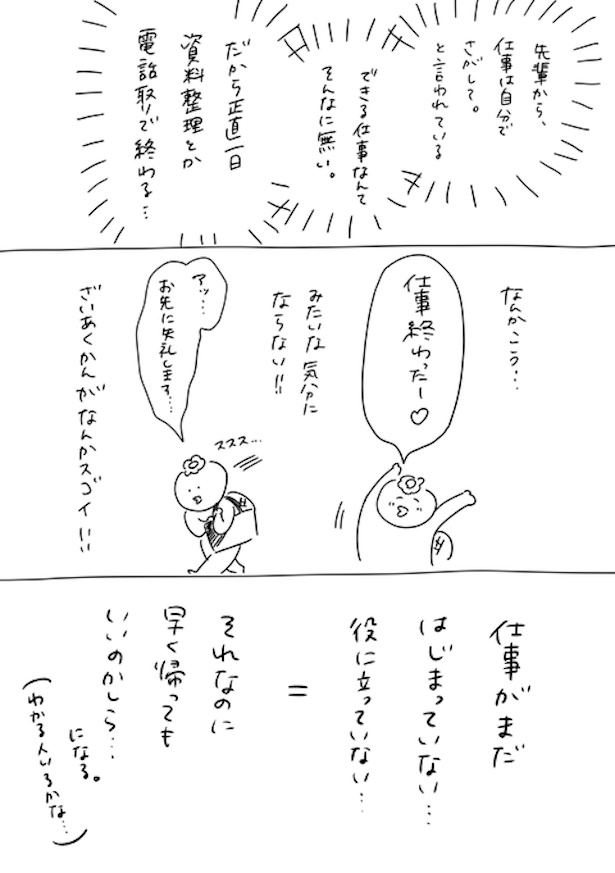 先輩から、
仕事は自分で
さがして。
と言われている
できる仕事なんて
そんなに無い。
だから正直一日
資料整理とか
電話取りで終わる…
なんかこう…
仕事終わったー♡
みたいな気分に
ならない!!
アッ…
お先に失礼します…
ススス…
ざいあくかんがなんかスゴイ!!
仕事がまだ
はじまっていない…
役に立っていない…
=
それなのに
早く帰っても
いいのかしら…
になる。
(わかる人いるかな…)